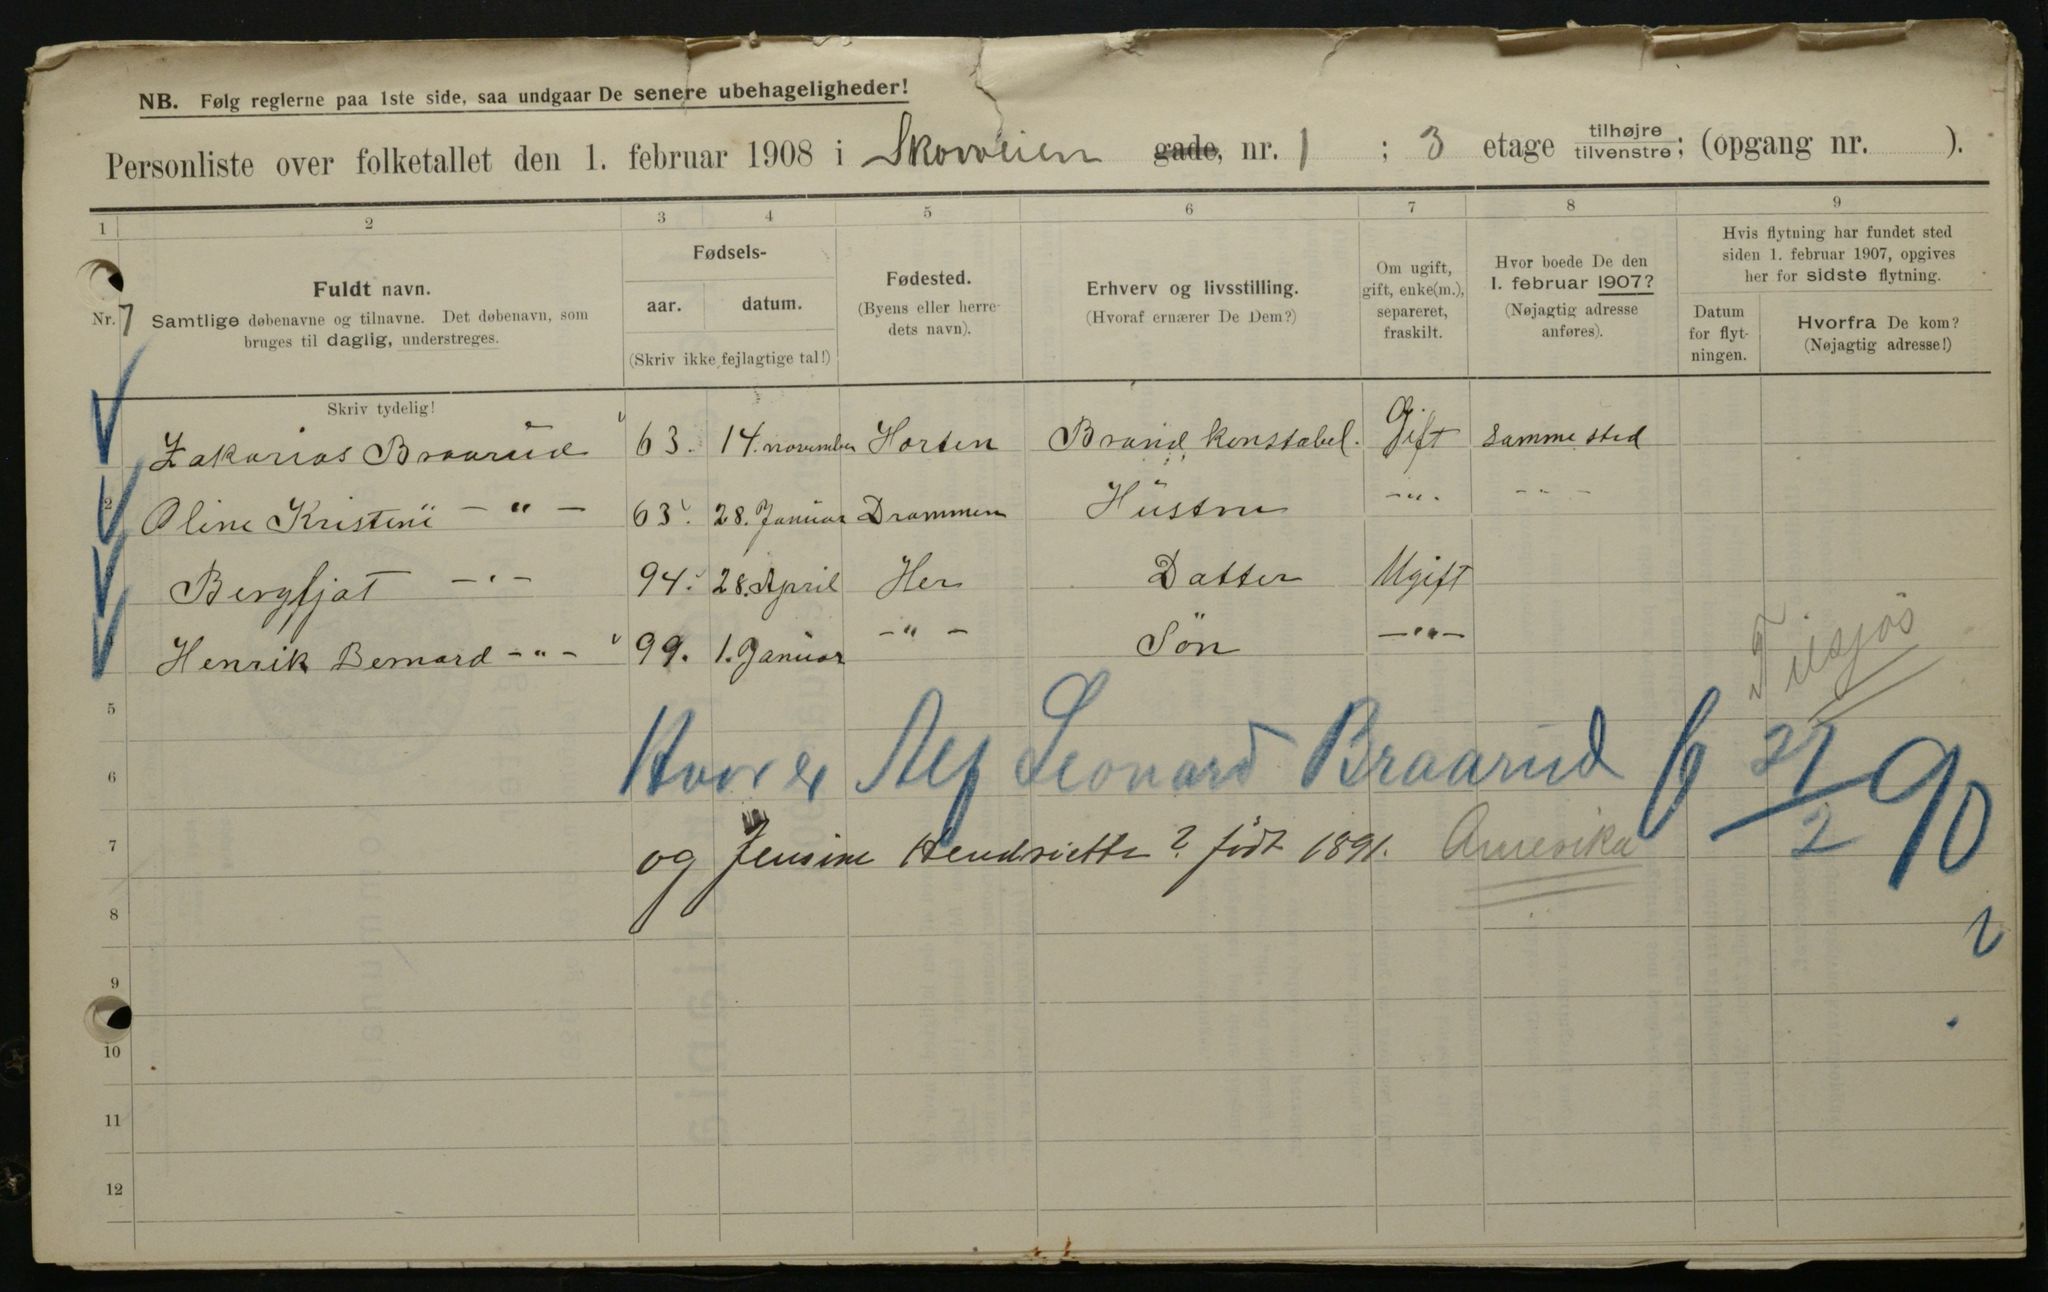 NB. Følg reglerne paa 1ste side, saa undgaar De senere ubehageligheder!
Personliste over folketallet den 1. februar 1908 i Skovveien gade, nr. 1 ; 3 etage tilhøjre tilvenstre; (opgang nr. ).
1 2 3 4 5 6 7 8 9
Nr. 7
Fuldt navn.
Samtlige døbenavne og tilnavne. Det døbenavn, som
bruges til daglig, understreges.
Skriv tydelig!
Fødsels-
aar. datum.
(Skriv ikke fejlagtige tal!)
Fødested.
(Byens eller herre-
dets navn).
Erhverv og livsstilling.
(Hvoraf ernærer De Dem?)
Om ugift,
gift, enke(m.),
separeret,
fraskilt.
Hvor boede De den
1. februar 1907?
(Nøjagtig adresse
anføres).
Hvis flytning har fundet sted
siden 1. februar 1907, opgives
her for sidste flytning.
Datum
for flyt-
ningen.
Hvorfra De kom?
(Nøjagtig adresse!)
Zakarias Braarud 63. 14. november Horten Brand konstabel. Gift Samme sted
2 Oline Kristine — " — 63. 28. Januar Drammen Hustru — " — — " —
Bergljot — " — 94. 28. April Her Datter Ugift
Henrik Bernard — " — 99. 1. Januar — " — Søn — " —
Tilsjøs
5
6 Hvor er Alf Leonard Braarud f 27/2 90
7 og Jensine Hendriette? født 1891. Amerika
8
9
10
11
12